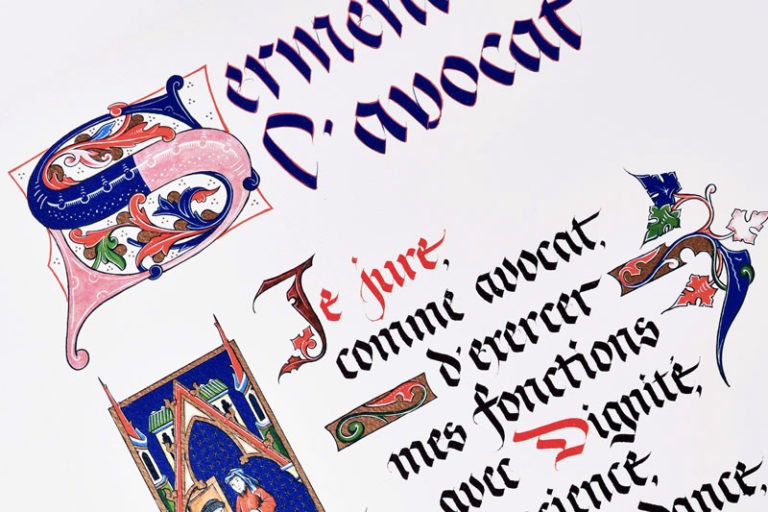 Serment
l'avocat
Je jure,
comme avocat,
d'exercer
mes fonctions
avec Dignité,
science,
dance,